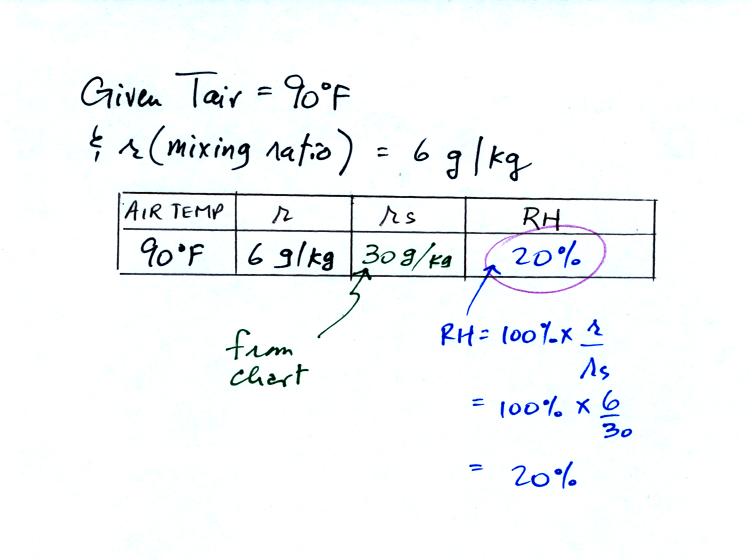 Given Tair = 90°F
& r (mixing ratio) = 6 g/kg
AIR TEMP r rs RH
90°F 6 g/kg 30 g/kg 20%
from
chart
RH = 100% x r/rs
= 100% x 6/30
= 20%